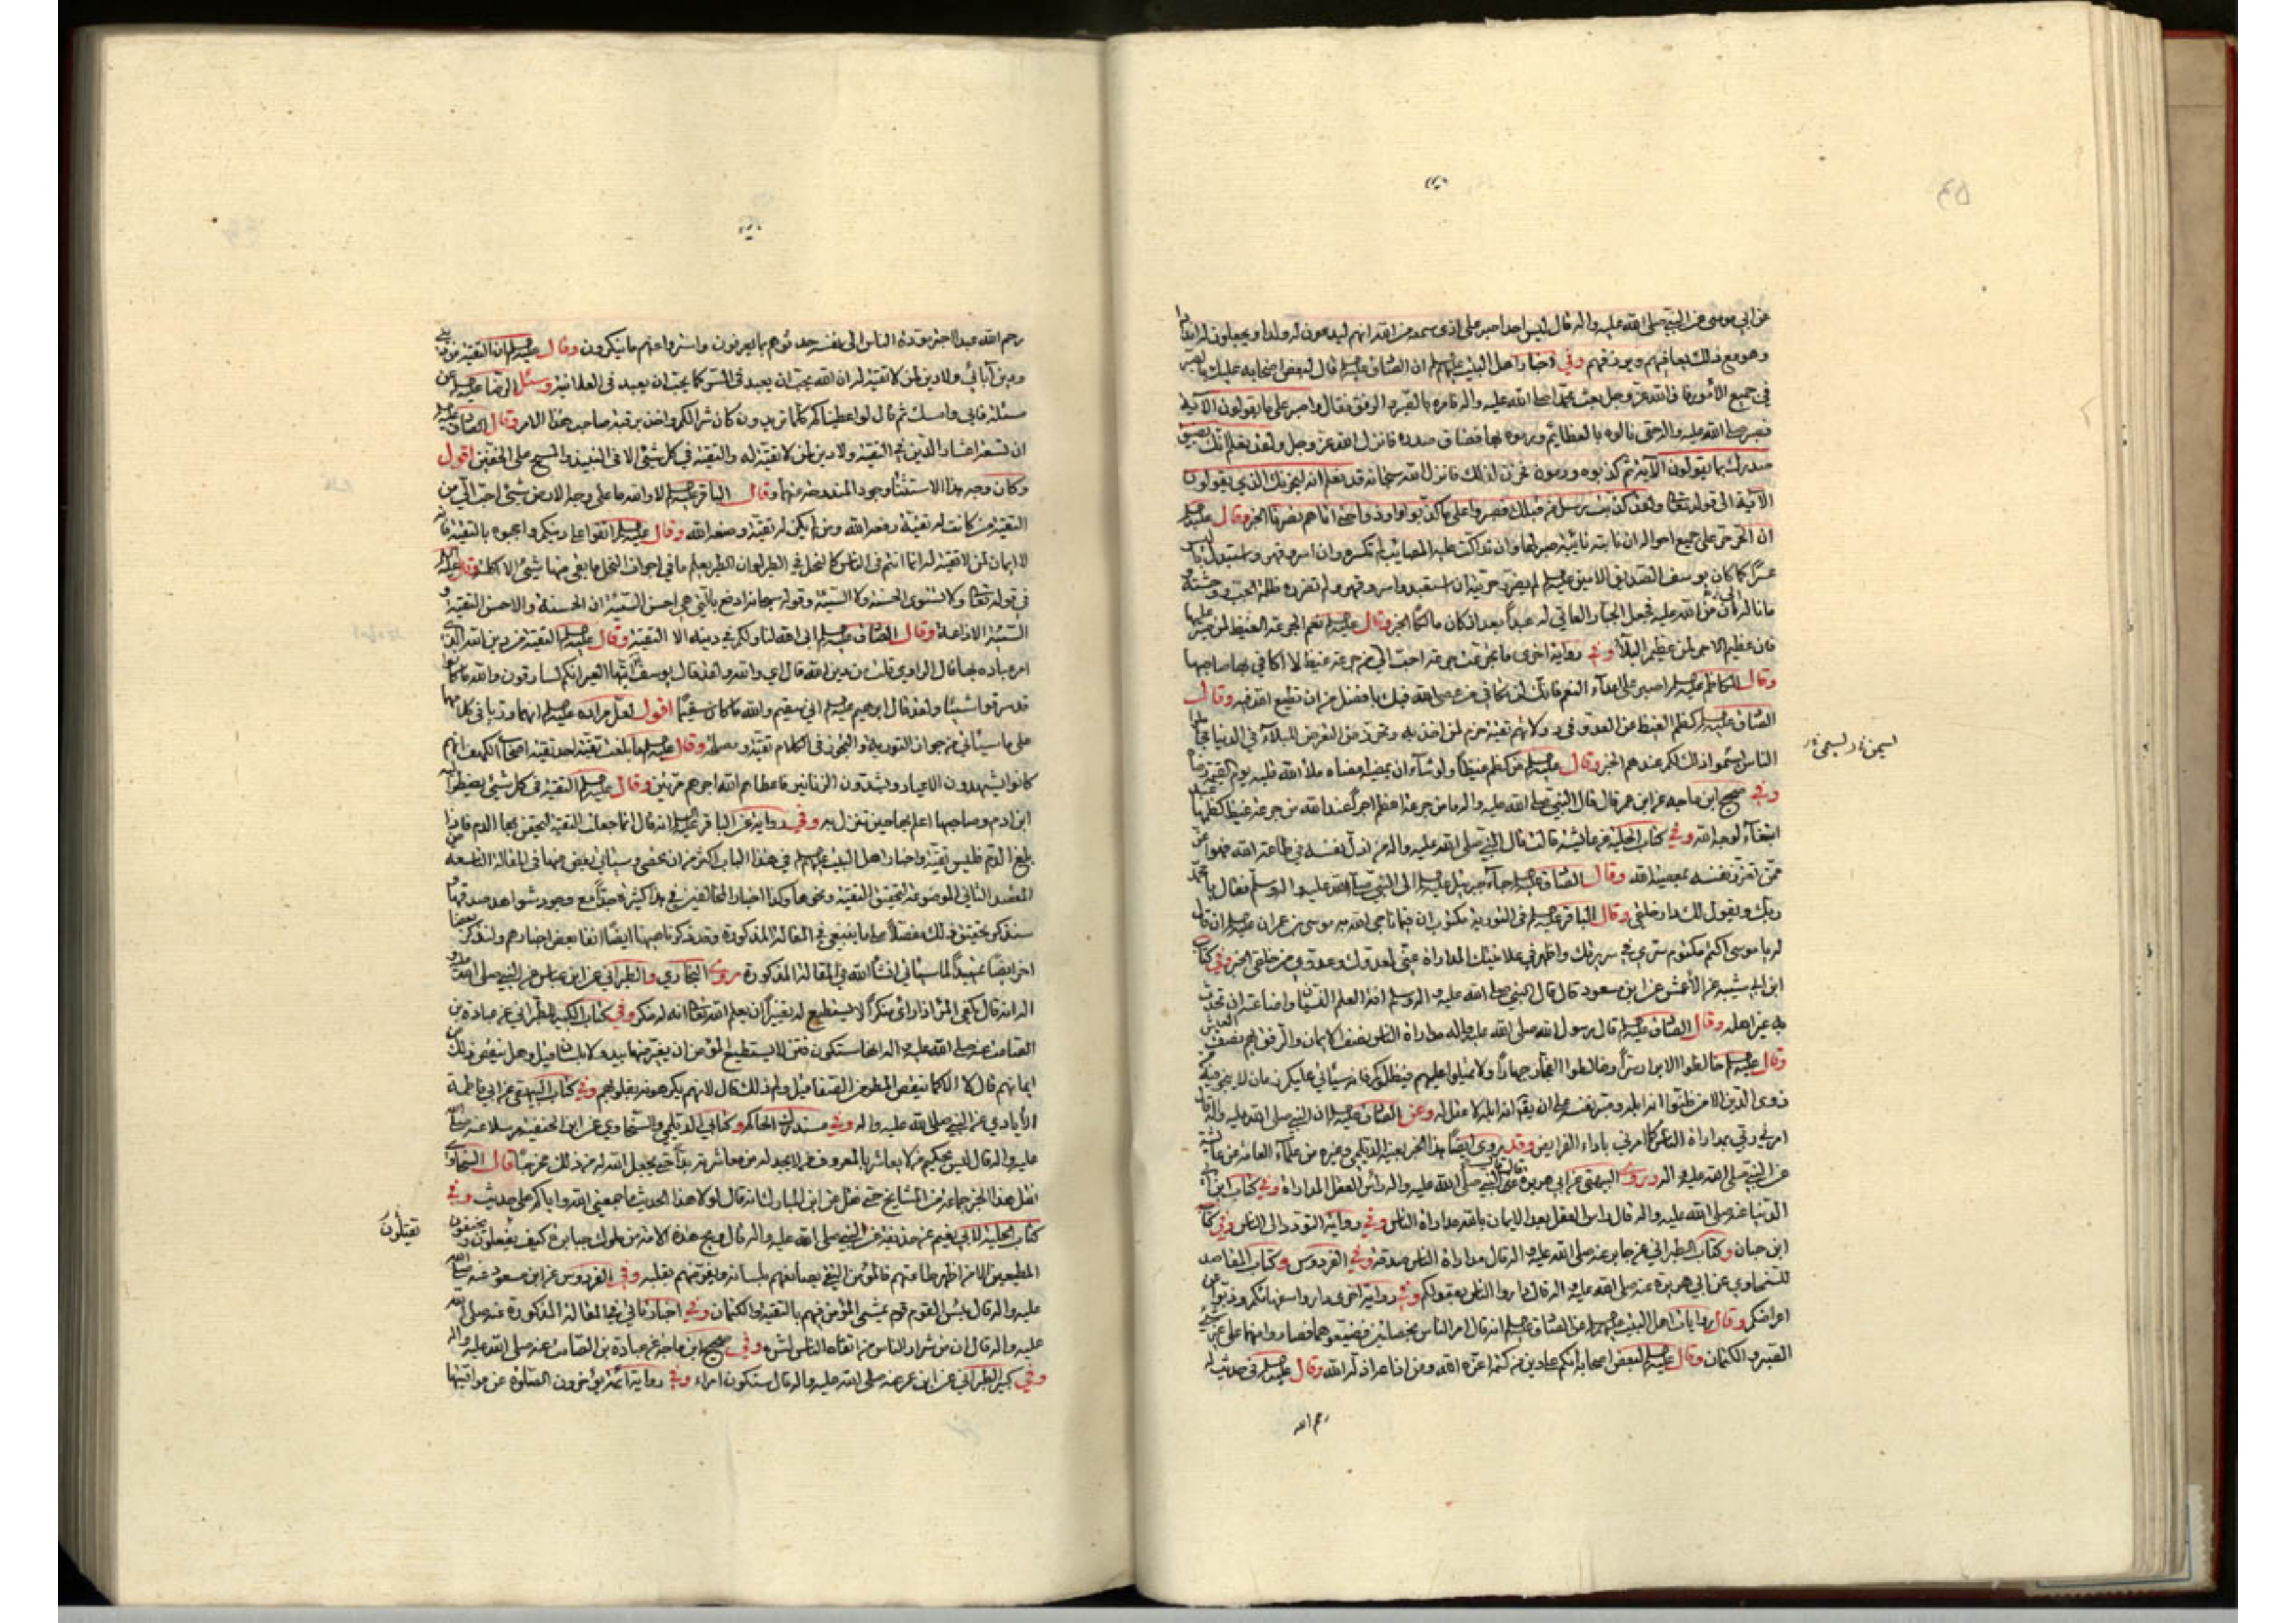 عن ابي موسى عن النبي صلى الله عليه واله قال ليس احد اصبر على اذى سمعه من الله انهم ليدعون له ولدا ويجعلون له اندادا
وهو مع ذلك يعافيهم ويرزقهم وفي اخبار اهل البيت عليهم السلام ان الصادق عليه السلام قال لبعض اصحابه عليك بالصبر
في جميع الأمور فان الله عز وجل بعث محمدا صلى الله عليه واله فامره بالصبر والرفق فقال واصبر على ما يقولون الآية
فصبر صلى الله عليه واله حتى نالوه بالعظائم ورموه بها فضاق صدره فانزل الله عز وجل ولقد نعلم انك يضيق
صدرك بما يقولون الآية ثم كذبوه ورموه فحزن لذلك فانزل الله سبحانه قد نعلم انه ليحزنك الذي يقولون
الآية الى قوله تعالى ولقد كذبت رسل من قبلك فصبروا على ما كذبوا واوذوا حتى اتاهم نصرنا الخبر وقال عليه السلام
ان الحر حر على جميع احواله ان نابته نائبة صبر لها وان تداكت عليه المصائب لم تكسره وان اسر وقهر واستبدل باليسر
عسرا كما كان يوسف الصديق الامين عليه السلام لم يضرر حريته ان استعبد واسر وقهر ولم تضرره ظلمة الجب ووحشته
وما ناله ان من الله عليه فجعل الجبار العاتي له عبدا بعد اذ كان مالكا الخبر وقال عليه السلام نعم الجرعة الغيظ لمن صبر عليها
فان عظيم الاجر لمن عظيم البلاء وفي رواية اخرى ما تجرعت جرعة احب الي من جرعة غيظ لا اكافي بها صاحبها
وقال الكاظم عليه السلام اصبر على اعداء النعم فانك لن تكافي من عصى الله فيك بافضل من ان تطيع الله فيه وقال
الصادق عليه السلام كظم الغيظ عن العدو في دولاتهم تقية حزم لمن اخذ به وتحرز من التعرض للبلاء في الدنيا
الناس يسمنوا ذلك لكم عندهم الخبر وقال عليه السلام من كظم غيظا ولو شاء ان يمضيه امضاه ملأ الله قلبه يوم القيمة رضاه
وفي صحيح ابن ماجه عن ابن عمر قال قال النبي صلى الله عليه واله ما من جرعة اعظم اجرا عند الله من جرعة غيظ كظمها عبد
ابتغاء لوجه الله وفي كتاب الحلية عن عائشة قالت قال النبي صلى الله عليه واله من اذل نفسه في طاعة الله فهو اعز
ممن تعزز نفسه بمعصية الله وقال الصادق عليه السلام جاء جبرئيل عليه السلام الى النبي صلى الله عليه واله وسلم فقال يا محمد
ربك ويقول لك دار خلقي وقال الباقر عليه السلام في التورية مكتوب ان فيما ناجى الله به موسى بن عمران عليه السلام ان قال
له يا موسى اكتم مكتوم سري في سريرتك واظهر في علانيتك المداراة عني لعدوك وعدوي من خلقي الخبر وفي كتاب
ابن ابي شيبه عن الأعمش عن ابن مسعود قال قال النبي صلى الله عليه واله وسلم افة العلم النسيان واضاعته ان تحدث
به غير اهله وقال الصادق عليه السلام قال رسول الله صلى الله عليه واله مداراة الناس نصف الايمان والرفق بهم نصف العيش
وقال عليه السلام خالطوا الابرار سرا وخالطوا الفجار جهارا ولا تميلوا عليهم فيظلموكم فانه سيأتي عليكم زمان لا ينجو فيه
ذوى الدين الا من ظنوا انه ابله وصبر نفسه على ان يقال انه ابله لا عقل له وعن الصادق عليه السلام ان النبي صلى الله عليه واله قال
امرني ربي بمداراة الناس كما امرني باداء الفرايض وقد روى ايضا هذا الخبر بعينه الديلمي وغيره من علماء العامة عن عائشة
عن النبي صلى الله عليه واله وروى البيهقي عن ابي هريرة قال قال النبي صلى الله عليه واله رأس العقل المداراة وفي كتاب ابن ابي
الدنيا عنه صلى الله عليه واله قال رأس العقل بعد الايمان بالله مداراة الناس وفي رواية التودد الى الناس وفي كتاب
ابن حبان وكتاب الطبراني عن جابر عنه صلى الله عليه واله قال مداراة الناس صدقة وفي الفردوس وكتاب المقاصد
للسخاوي عن ابي هريرة عنه صلى الله عليه واله قال داروا الناس بعقولكم وفي رواية اخرى داروا سفهائكم وذبوا عن
اعراضكم وقال روايات اهل البيت عليهم السلام عن الصادق عليه السلام انه قال امر الناس بخصلتين فضيعوهما فصاروا منهما على غير شيء
الصبر والكتمان وقال عليه السلام لبعض اصحابه انكم على دين من كتمه اعزه الله ومن اذاعه اذله الله وقال عليه السلام في حديث له
رحم الله
رحم الله عبدا اجتر مودة الناس الى نفسه حدثوهم بما يعرفون واستروا عنهم ما ينكرون وقال عليه السلام ان التقية من ديني
ودين آبائي ولا دين لمن لا تقية له ان الله يحب ان يعبد في السر كما يحب ان يعبد في العلانية وسئل الرضا عليه السلام عن
مسئلة فابى وامسك ثم قال لو اعطيناكم كلما تريدون كان شرا لكم واخذ برقبة صاحب هذا الامر وقال الصادق عليه السلام
ان تسعة اعشار الدين في التقية ولا دين لمن لا تقية له والتقية في كل شيء الا في النبيذ والمسح على الخفين اقول
وكان وجه هذا الاستثناء وجود المندوحة عنهما وقال الباقر عليه السلام لا والله ما على وجه الارض شيء احب الي من
التقية من كانت له تقية رفعه الله ومن لم يكن له تقية وضعه الله وقال عليه السلام اتقوا على دينكم واحجبوه بالتقية فانه
لا ايمان لمن لا تقية له انما انتم في الناس كالنحل في الطير لو ان الطير يعلم ما في اجواف النحل ما بقي منها شيء الا اكلته وقال عليه السلام
في قوله تعالى ولا تستوى الحسنة ولا السيئة وقوله سبحانه ادفع بالتي هي احسن السيئة ان الحسنة والاحسن التقية و
السيئة الاذاعة وقال الصادق عليه السلام ابى الله لنا ولكم في دينه الا التقية وقال عليه السلام التقية من دين الله الذي
امر عباده بها قال الراوي قلت من دين الله قال اي والله ولقد قال يوسف أيتها العير انكم لسارقون والله ما كانوا
قد سرقوا شيئا ولقد قال ابرهيم عليه السلام اني سقيم والله ما كان سقيما اقول لعل مراده عليه السلام انهما وريا في كلامهما
على ما سيأتي من جواز التورية والتجوز في الكلام تقية ومصلحة وقال عليه السلام ما بلغت تقية احد تقية اصحاب الكهف انهم
كانوا ليشهدون الاعياد ويشدون الزنانير فاعطاهم الله اجرهم مرتين وقال عليه السلام التقية في كل شيء يضطر اليه
ابن ادم وصاحبها اعلم بها حين تنزل به وفي رواية عن الباقر عليه السلام انه قال انما جعلت التقية ليحقن بها الدم فاذا
بلغ الدم فليس تقية واخبار اهل البيت عليهم السلام في هذا الباب اكثر من ان يحصى وسيأتي بعض منها في المقالة التاسعة من
المقصد الثاني الموضوعة لتحقيق التقية ونحوها وكذا اخبار المخالفين في هذا كثيرة جدا مع وجود شواهد صدقها و
سنذكر تحقيق ذلك مفصلا على ما ينبغي في المقالة المذكورة وقد ذكرنا هيهنا ايضا انفا بعض اخبارهم ولنذكر بعضا
اخر ايضا تمهيدا لما سيأتي انشاء الله في المقالة المذكورة روى البخاري والطبراني عن ابن عباس عن النبي صلى الله عليه و
اله انه قال كفى المرء اذا رأى منكرا لا يستطيع له تغييرا ان يعلم الله تعالى انه له منكر وفي كتاب الكبير للطبراني عن عبادة بن
الصامت عنه صلى الله عليه واله انها ستكون فتن لا يستطيع المؤمن ان يغير منها بيد ولا بلسان قيل وهل ينقص ذلك من
ايمانهم قال لا الا كما ينقص المطر من الصفا قيل ولم ذلك قال لانهم يكرهونه بقلوبهم وفي كتاب البيهقي عن ابي فاطمة
الأيادي عن النبي صلى الله عليه واله وفي مستدرك الحاكم وكتابي الديلمي والسخاوي عن ابن الحنفية مرسلا عنه صلى الله
عليه واله قال ليس بحكيم من لا يعاشر بالمعروف من لا يجد له من معاشرته بدا حتى يجعل الله له من ذلك مخرجا قال السخاوى
نقل هذا الخبر جماعة من المشايخ حتى نقل عن ابن المبارك انه قال لولا هذا الحديث ما جمعني الله واياكم على حديث وفي
كتاب الحلية لابي نعيم عن حذيفة عن النبي صلى الله عليه واله قال ويح هذه الامة من ملوك جبابرة كيف يقتلون ويخيفون
المطيعين الا من اظهر طاعتهم فالمؤمن التقي يصانعهم بلسانه ويفر منهم بقلبه وفي الفردوس عن ابن مسعود عنه صلى الله
عليه واله قال بئس القوم قوم يمشي المؤمن فيهم بالتقية والكتمان وفي اخبار تأتي في المقالة المذكورة عنه صلى الله
عليه واله قال ان من شرار الناس من اتقاه الناس لشره وفي صحيح ابن ماجه عن عبادة بن الصامت عنه صلى الله عليه واله
وفي كبير الطبراني عن ابن عمر عنه صلى الله عليه واله قال ستكون امراء وفي رواية ائمة يؤخرون الصلوة عن مواقيتها